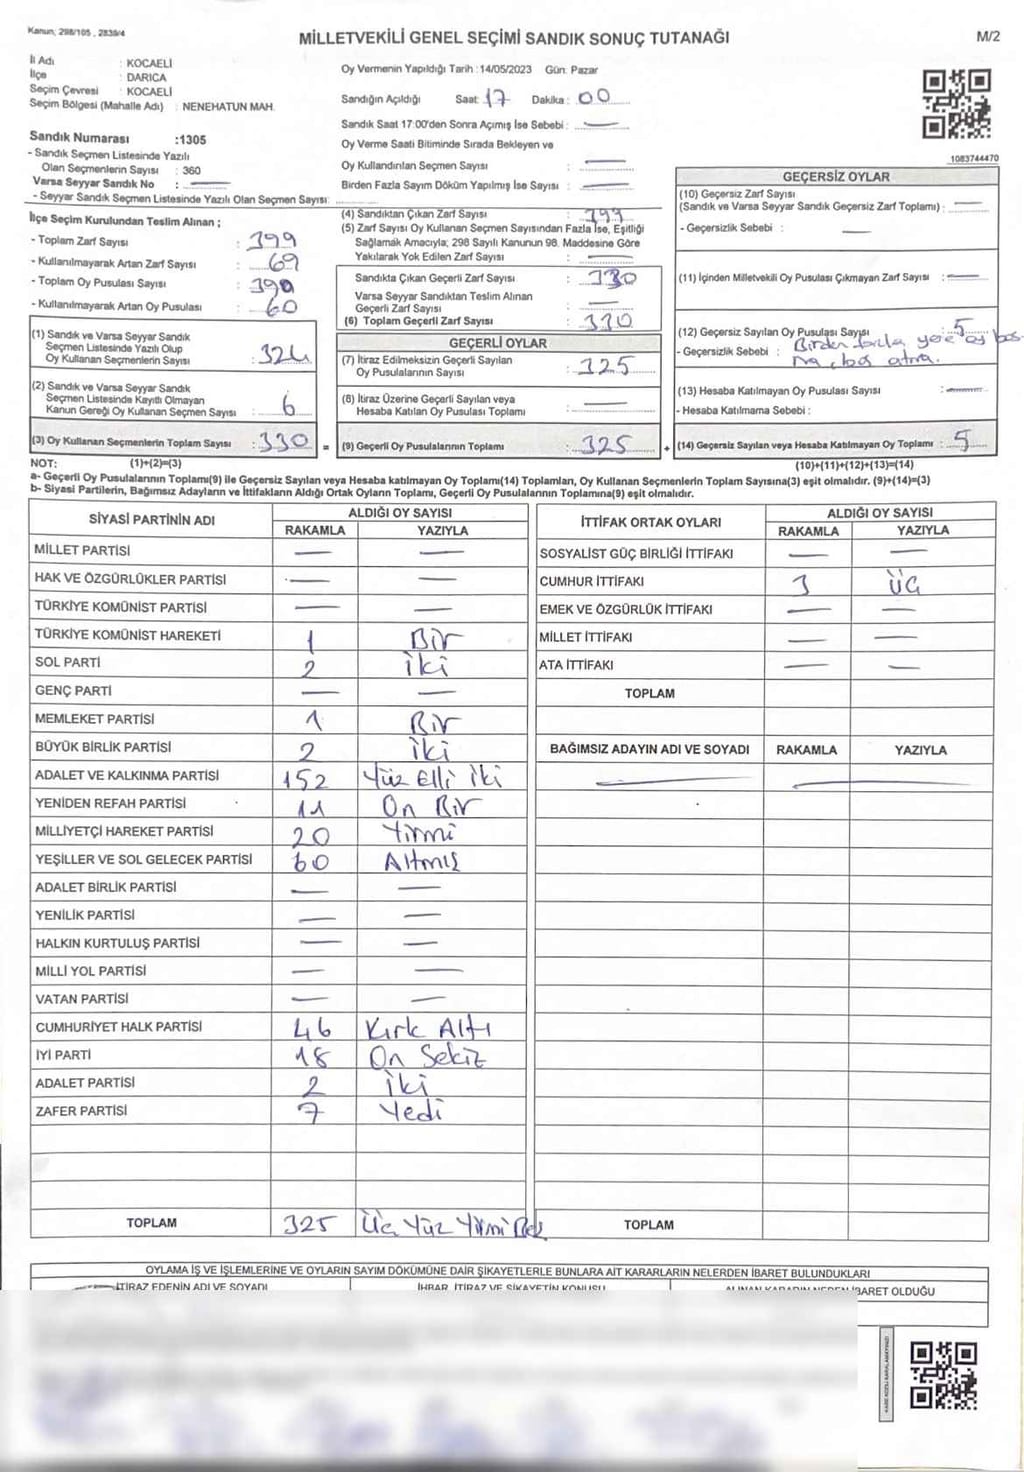 Kanun, 298/105 , 2839/4
MİLLETVEKİLİ GENEL SEÇİMİ SANDIK SONUÇ TUTANAĞI
M/2
İl Adı : KOCAELİ
İlçe : DARICA
Seçim Çevresi : KOCAELİ
Seçim Bölgesi (Mahalle Adı) : NENEHATUN MAH.
Sandık Numarası :1305
- Sandık Seçmen Listesinde Yazılı
Olan Seçmenlerin Sayısı : 360
Varsa Seyyar Sandık No : —
- Seyyar Sandık Seçmen Listesinde Yazılı Olan Seçmen Sayısı:
Oy Vermenin Yapıldığı Tarih :14/05/2023 Gün: Pazar
Sandığın Açıldığı Saat: 17 Dakika: 00
Sandık Saat 17:00'den Sonra Açımış İse Sebebi : —
Oy Verme Saati Bitiminde Sırada Bekleyen ve
Oy Kullandırılan Seçmen Sayısı : —
Birden Fazla Sayım Döküm Yapılmış İse Sayısı : —
1083744470
İlçe Seçim Kurulundan Teslim Alınan ;
- Toplam Zarf Sayısı : 399
- Kullanılmayarak Artan Zarf Sayısı : 69
- Toplam Oy Pusulası Sayısı : 390
- Kullanılmayarak Artan Oy Pusulası : 60
(1) Sandık ve Varsa Seyyar Sandık
Seçmen Listesinde Yazılı Olup
Oy Kullanan Seçmenlerin Sayısı : 324
(2) Sandık ve Varsa Seyyar Sandık
Seçmen Listesinde Kayıtlı Olmayan
Kanun Gereği Oy Kullanan Seçmen Sayısı : 6
(3) Oy Kullanan Seçmenlerin Toplam Sayısı : 330
(4) Sandıktan Çıkan Zarf Sayısı :
(5) Zarf Sayısı Oy Kullanan Seçmen Sayısından Fazla İse, Eşitliği
Sağlamak Amacıyla; 298 Sayılı Kanunun 98. Maddesine Göre
Yakılarak Yok Edilen Zarf Sayısı : —
Sandıkta Çıkan Geçerli Zarf Sayısı : 330
Varsa Seyyar Sandıktan Teslim Alınan
Geçerli Zarf Sayısı : —
(6) Toplam Geçerli Zarf Sayısı : 330
GEÇERLİ OYLAR
(7) İtiraz Edilmeksizin Geçerli Sayılan
Oy Pusulalarının Sayısı : 325
(8) İtiraz Üzerine Geçerli Sayılan veya
Hesaba Katılan Oy Pusulası Toplamı : —
= (9) Geçerli Oy Pusulalarının Toplamı : 325
GEÇERSİZ OYLAR
(10) Geçersiz Zarf Sayısı
(Sandık ve Varsa Seyyar Sandık Geçersiz Zarf Toplamı) : —
- Geçersizlik Sebebi : —
(11) İçinden Milletvekili Oy Pusulası Çıkmayan Zarf Sayısı : —
(12) Geçersiz Sayılan Oy Pusulası Sayısı : 5
- Geçersizlik Sebebi : Birden fazla yere oy
atma.
(13) Hesaba Katılmayan Oy Pusulası Sayısı : —
- Hesaba Katılmama Sebebi :
+ (14) Geçersiz Sayılan veya Hesaba Katılmayan Oy Toplamı : 5
NOT: (1)+(2)=(3)
(10)+(11)+(12)+(13)=(14)
a- Geçerli Oy Pusulalarının Toplamı(9) ile Geçersiz Sayılan veya Hesaba katılmayan Oy Toplamı(14) Toplamları, Oy Kullanan Seçmenlerin Toplam Sayısına(3) eşit olmalıdır. (9)+(14)=(3)
b- Siyasi Partilerin, Bağımsız Adayların ve İttifakların Aldığı Ortak Oyların Toplamı, Geçerli Oy Pusulalarının Toplamına(9) eşit olmalıdır.
SİYASİ PARTİNİN ADI ALDIĞI OY SAYISI
RAKAMLA YAZIYLA
MİLLET PARTİSİ — —
HAK VE ÖZGÜRLÜKLER PARTİSİ — —
TÜRKİYE KOMÜNİST PARTİSİ — —
TÜRKİYE KOMÜNİST HAREKETİ 1 Bir
SOL PARTİ 2 iki
GENÇ PARTİ — —
MEMLEKET PARTİSİ 1 Bir
BÜYÜK BİRLİK PARTİSİ 2 iki
ADALET VE KALKINMA PARTİSİ 152 Yüz Elli iki
YENİDEN REFAH PARTİSİ 11 On Bir
MİLLİYETÇİ HAREKET PARTİSİ 20 Yirmi
YEŞİLLER VE SOL GELECEK PARTİSİ 60 Altmış
ADALET BİRLİK PARTİSİ — —
YENİLİK PARTİSİ — —
HALKIN KURTULUŞ PARTİSİ — —
MİLLİ YOL PARTİSİ — —
VATAN PARTİSİ — —
CUMHURİYET HALK PARTİSİ 46 Kırk Altı
İYİ PARTİ 18 On Sekiz
ADALET PARTİSİ 2 iki
ZAFER PARTİSİ 7 Yedi
TOPLAM 325 Üç Yüz Yirmi Beş
İTTİFAK ORTAK OYLARI ALDIĞI OY SAYISI
RAKAMLA YAZIYLA
SOSYALİST GÜÇ BİRLİĞİ İTTİFAKI — —
CUMHUR İTTİFAKI 3 ÜÇ
EMEK VE ÖZGÜRLÜK İTTİFAKI — —
MİLLET İTTİFAKI — —
ATA İTTİFAKI — —
TOPLAM
BAĞIMSIZ ADAYIN ADI VE SOYADI RAKAMLA YAZIYLA
TOPLAM
OYLAMA İŞ VE İŞLEMLERİNE VE OYLARIN SAYIM DÖKÜMÜNE DAİR ŞİKAYETLERLE BUNLARA AİT KARARLARIN NELERDEN İBARET BULUNDUKLARI
İTİRAZ EDENİN ADI VE SOYADI İHBAR, İTİRAZ VE ŞİKAYETİN KONUSU ALINAN KARARIN NEDEN İBARET OLDUĞU